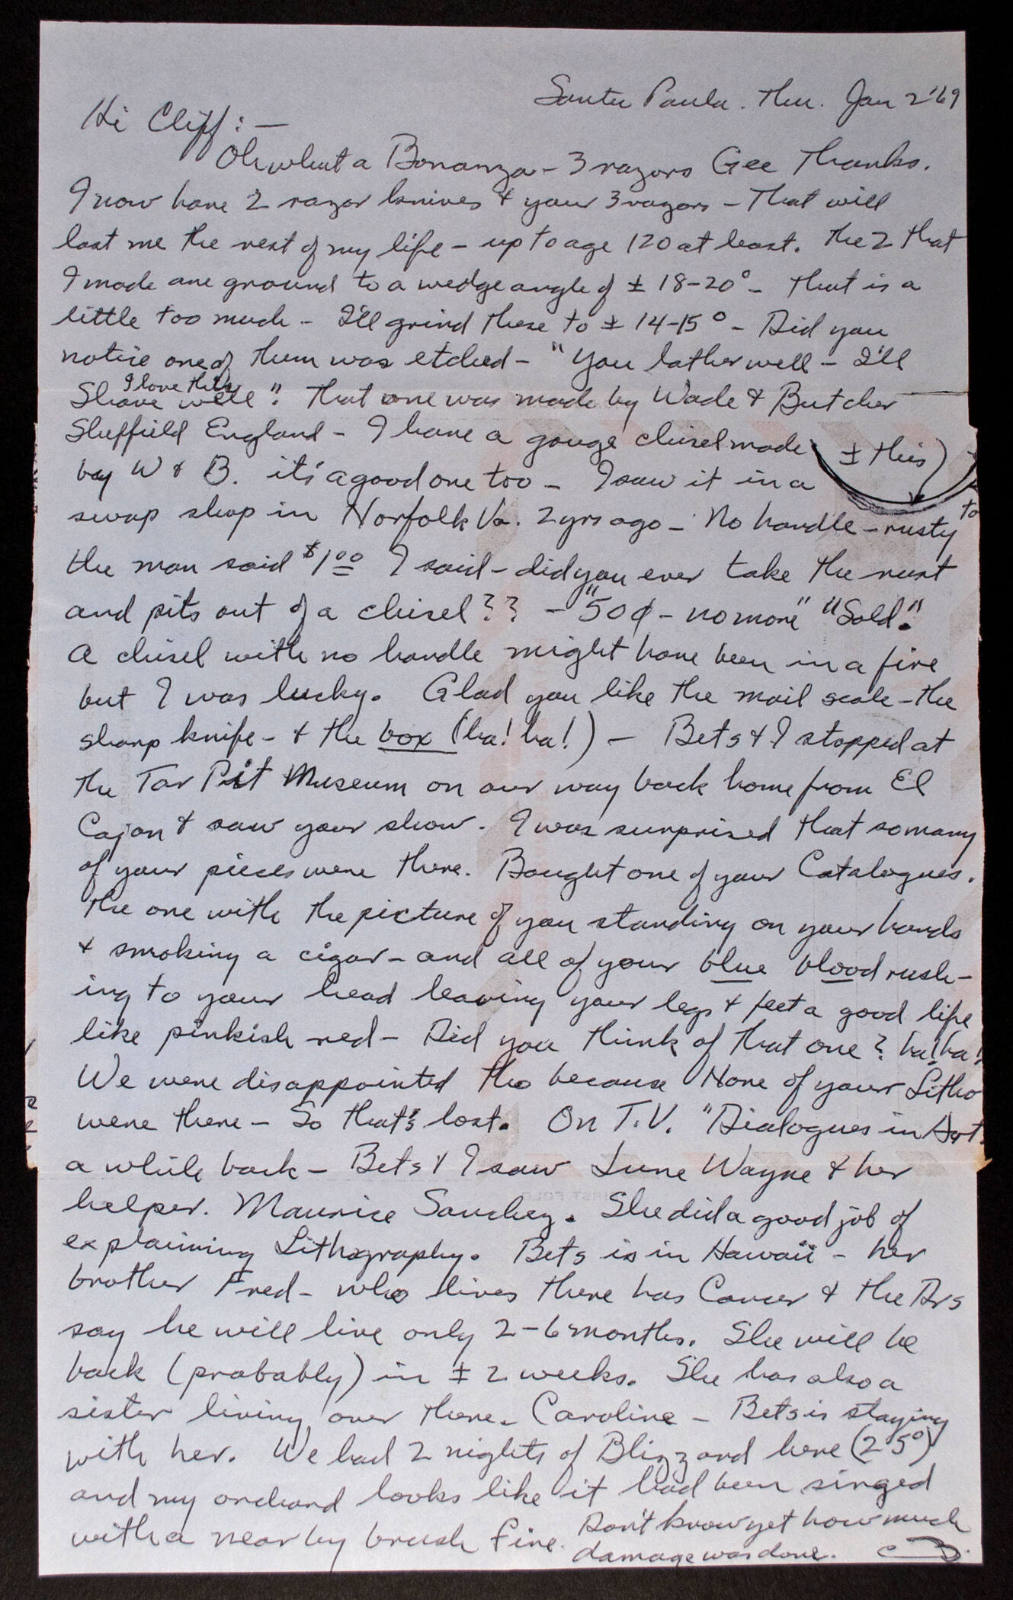 Santa Paula. Thu. Jan 2 '69
Hi Cliff: —
Oh what a Bonanza - 3 razors Gee Thanks.
I now have 2 razor knives & your 3 razors - That will
last me the rest of my life - up to age 120 at least. The 2 that
I made are ground to a wedge angle of ± 18-20° - that is a
little too much - I'll grind these to ± 14-15° - Did you
notice one of them was etched - "You lather well - I'll
Shave well". I love this That one was made by Wade & Butcher
Sheffield England - I have a gouge chisel made ± this
by W & B. it's a good one too - I saw it in a
swap shop in Norfolk Va. 2 yrs ago - No handle - rusty to
the man said $1.00 I said - did you ever take the rust
and pits out of a chisel?? - "50¢ - no more" "Sold."
A chisel with no handle might have been in a fire
but I was lucky. Glad you like the mail scale - the
sharp knife - & the box (ha! ha!) - Bets & I stopped at
the Tar Pit Museum on our way back home from El
Cajon & saw your show. I was surprised that so many
of your pieces were there. Bought one of your Catalogues.
The one with the picture of you standing on your hands
& smoking a cigar - and all of your blue blood rush-
ing to your head leaving your legs & feet a good life
like pinkish red - Did you think of that one? ha! ha!
We were disappointed tho because None of your Litho
were there - So that's lost. On T.V. "Dialogues in Art.
a while back - Bets & I saw June Wayne & her
helper. Maurice Sanchez. She did a good job of
explaining Lithography. Bets is in Hawaii - her
brother Fred - who lives there has Cancer & the Drs
say he will live only 2-6 months. She will be
back (probably) in ± 2 weeks. She has also a
sister living over there. Caroline - Bets is staying
with her. We had 2 nights of Blizzard here (25°)
and my orchard looks like it had been singed
with a near by brush fire. Don't know yet how much
damage was done.